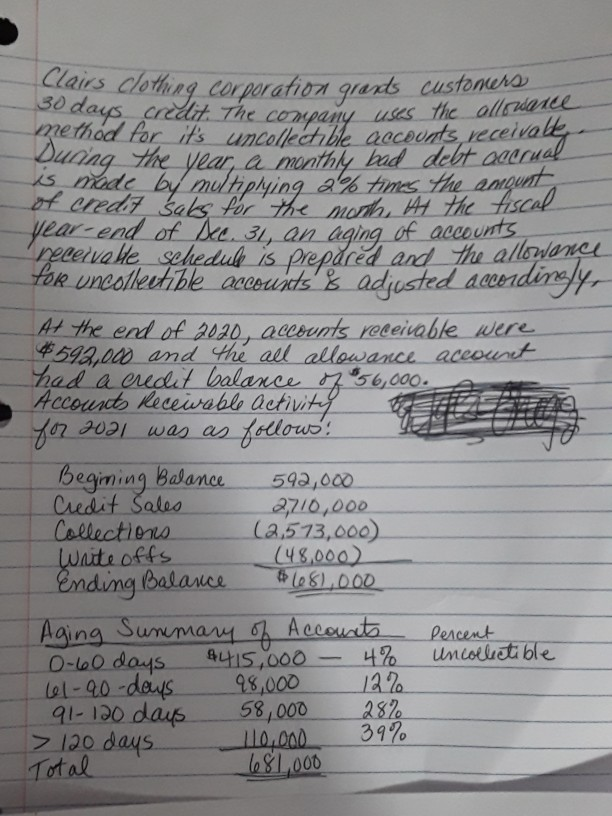 Clairs clothing corporation grants customers
30 days credit. The company uses the allowance
method for it's uncollectible accounts receivable.
During the year, a monthly bad debt accrual
is made by multiplying 2% times the amount
of credit sales for the month. At the fiscal
year-end of Dec. 31, an aging of accounts
receivable schedule is prepared and the allowance
for uncollectible accounts is adjusted accordingly.
At the end of 2020, accounts receivable were
$592,000 and the all allowance account
had a credit balance of $56,000.
Accounts Receivable activity
for 2021 was as follows:
Begining Balance 592,000
Credit Sales 2,710,000
Collections (2,573,000)
Write offs (48,000)
Ending Balance $681,000
Aging Summary of Accounts Percent
0-60 days $415,000 — 4% Uncollectible
61-90-days 98,000 12%
91-120 days 58,000 28%
> 120 days 110,000 39%
Total 681,000